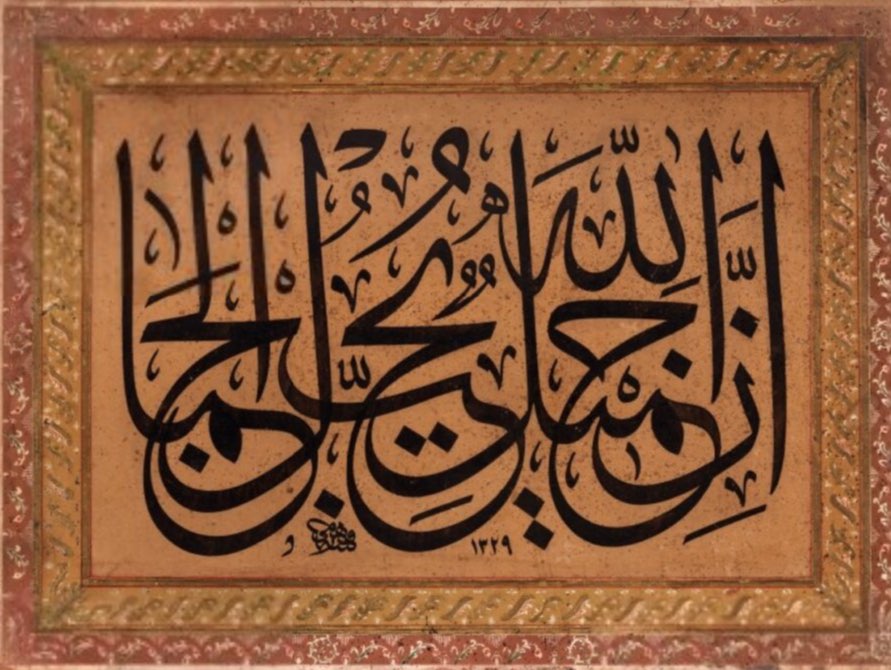 إِنَّ اللَّهَ جَمِيلٌ يُحِبُّ الْجَمَالَ
١٣٢٩